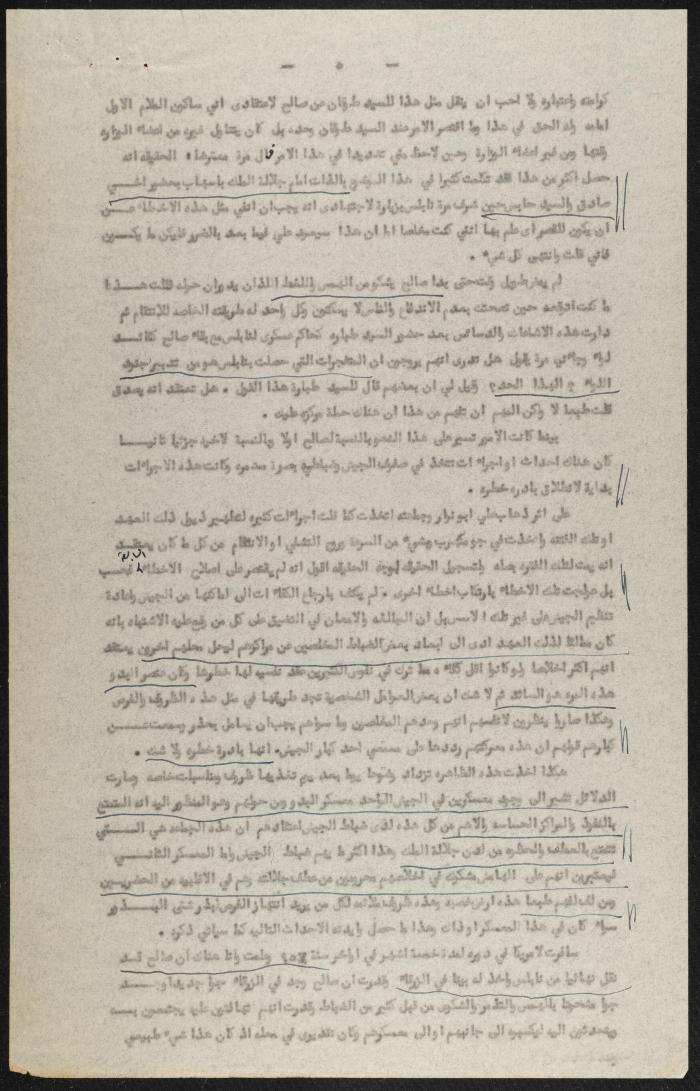 - ٥ -
كرامته واعتباره ولا احب ان ينقل مثل هذا للسيد طوقان عن صالح لاعتقادى انني ساكون الملام الاول
امامه وله الحق في هذا وما اقتصر الامر عند السيد طوقان وحده بل كان يتناول غيره من اعضاء الوزارة
وقتها ومن غير اعضاء الوزارة وحين لاحظ مني تشديدا في هذا الامر قال مرة معترضا : الحقيقه انه
حصل اكثر من هذا فقد تكلمت كثيرا في هذا الموضوع بالذات امام جلالة الملك باسهاب بحضور اخي
صادق والسيد حابس حين شرف مرة نابلس بزيارة لاجتهادى انه يجب ان انفي مثل هذه الاخطاء عن
ان يكون للقصر اى علم بها انني كنت مخلصا اما ان هذا سيعود علي فيما بعد بالضرر فليكن ما يكون
فانني قلت وانتهى كل شيء .
لم يمض طويل وقت حتى بدا صالح يشكو من الهمس واللغط اللذان يدوران حوله قلت هذا
ما كنت اتوقعه حين نصحتك بعدم الاندفاع والناس لا يسكتون وكل واحد له طريقته الخاصه للانتقام ثم
دارت هذه الاشاعات والدسائس بعد حضور السيد طبارة كحاكم عسكرى لنابلس مع بقاء صالح كقائد
لواء وجاءني مرة يقول هل تدرى انهم يروجون ان المتفجرات التي حصلت بنابلس هو من تدبير جنود
اللواء ؟ الهذا الحد ؟ وقيل لي ان بعضهم قال للسيد طبارة هذا القول . هل تعتقد انه يصدق
قلت طبعا لا ولكن المهم ان تفهم من هذا ان هناك حملة مركزه عليك .
بينما كانت الامور تسير على هذا النحو بالنسبة لصالح اولا وبالنسبة لاخيه جزئيا ثانيا
كان هناك احداث او اجراءات تتخذ في صفوف الجيش وضباطه بصورة مدمره وكانت هذه الاجراءات
بداية لانطلاق بادره خطره .
على اثر ذهاب علي ابو نوار وجماعته اتخذت كما قلت اجراءات كثيره لتطهير ذيول ذلك العهد
او تلك الفتنه واخذت في جو مكهرب وشيء من السرعة وروح التشفي او الانتقام من كل ما كان يعتقد
انه يمت لتلك الفتره بصله ولتسجيل الحقيقه لوجه الحقيقه اقول انه لم يقتصر على اصلاح الاخطاء فحسب
بل عولجت تلك الاخطاء بارتكاب اخطاء اخرى . لم يكتف بارجاع الكفاءات الى اماكنها من الجيش واعادة
تنظيم الجيش على غير تلك الاسس بل ان المبالغه والامعان في التضييق على كل من وقع عليه الاشتباه بانه
كان ممالئا لذلك العهد ادى الى ابعاد بعض الضباط المخلصين عن مراكزهم ليحل محلهم اخرين يعتقد
انهم اكثر اخلاصا ولو كانوا اقل كفاءه مما ترك في نفوس الكثيرين عقد نفسيه لها خطرها وكان عنصر البدو
هذه المره هو السائد ثم لا شك ان بعض العوامل الشخصية تجد طريقها في مثل هذه الظروف والفرص
وهكذا صاروا ينظرون لانفسهم انهم وحدهم المخلصين وما سواهم يجب ان يعامل بحذر وسمعت من
كبارهم قولهم ان هذه معركتهم رددها على مسمعي احد كبار الجيش. انها بادرة خطره ولا شك .
هكذا اخذت هذه الظاهره تزداد وضوحا يوما بعد يوم تغذيها ظروف ومناسبات خاصه وصارت
الدلائل تشير الى وجود معسكرين في الجيش الواحد معسكر البدو ومن حولهم وهو المنظور اليه انه المتمتع
بالنفوذ والمراكز الحساسه والاهم من كل هذه لدى ضباط الجيش اعتقادهم ان هذه الجماعه هي التي
تتمتع بالعطف والحظوه من لدن جلالة الملك وهذا اكثر ما يهم ضباط الجيش واما المعسكر الثاني
فيعتبرين انهم على الهامش مشكوك في اخلاصهم محرومين من عطف جلالته وهم في الاغلبيه من الحضريين
ومن لف لفهم طبعا هذه ارض خصبه وهذه ظروف ملائمه لكل من يريد انتهاز الفرص لبذر شتى البذور
سواء كان في هذا المعسكر او ذاك وهذا ما حصل وايدته الاحداث التاليه كما سياتي ذكره .
سافرت لامريكا في دوره لمدة خمسة اشهر في اواخر سنة ٩٥٨ وعلمت وانا هناك ان صالح قد
نقل نهائيا من نابلس واخذ له بيتا في الزرقاء وقدرت ان صالح وجد في الزرقاء جوا جديدا وجد
جوا مشحونا بالهمس والتذمر والشكوى من قبل كثير من الضباط وقدرت انهم تهافتون عليه يجتمعون به
ويتحدثون اليه ليكسبوه الى جانبهم او الى معسكرهم وكان تقديرى في محله اذ كان هذا شيء طبيعي